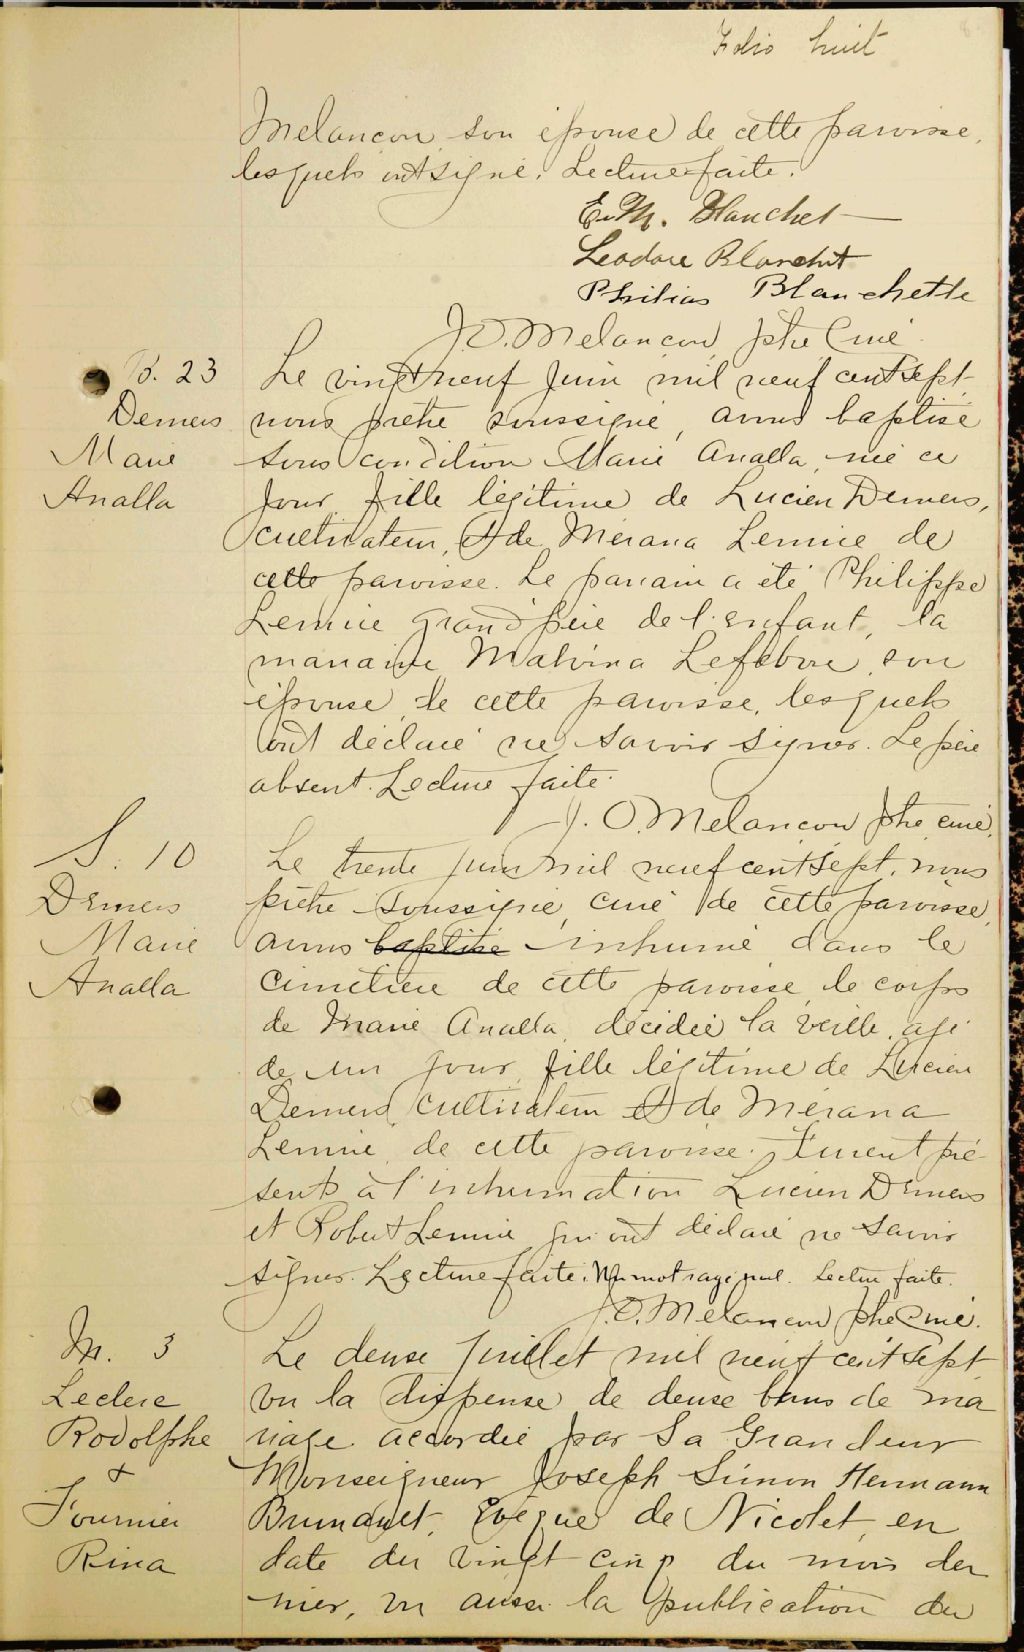 Folio huit
Melancon son épouse de cette paroisse,
lesquels ont signé. Lecture faite.
E. M. Blanchet
Leodore Blanchet
Philias Blanchette
J. O. Melancon ptre Curé
B. 23
Demers
Marie
Analla
Le vingt neuf Juin mil neuf cent sept
nous prêtre soussigné, avons baptisé
sous condition Marie Analla, née ce
jour fille légitime de Lucien Demers,
cultivateur, et de Mérana Lemire de
cette paroisse. Le parrain a été Philippe
Lemire grand père de l'enfant, la
marraine Malvina Lefebvre, son
épouse, de cette paroisse, lesquels
ont déclaré ne savoir signer. Le père
absent. Lecture faite.
J. O. Melancon ptre curé.
S. 10
Demers
Marie
Analla
Le trente juin mil neuf cent sept, nous
prêtre soussigné, curé de cette paroisse,
avons baptisé inhumé dans le
cimetière de cette paroisse, le corps
de Marie Analla, décédée la veille, agé
de un jour, fille légitime de Lucien
Demers cultivateur et de Mérana
Lemire, de cette paroisse. Furent pré-
sents à l'inhumation Lucien Demers
et Robert Lemire qui ont déclaré ne savoir
signer. Lecture faite. Un mot rayé nul. Lecture faite.
J. O. Melancon ptre Curé.
M. 3
Leclerc
Rodolphe
+
Fournier
Rina
Le deuse Juillet mil neuf cent sept
vu la dispense de deuse bans de ma
riage accordée par Sa Grandeur
Monseigneur Joseph Simon Hermann
Brunault, Evêque de Nicolet, en
date du vingt cinq du mois der
nier, vu aussi la publication du